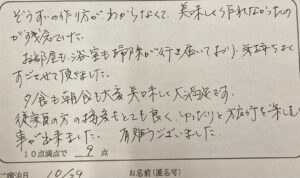 ぞうすいの作り方がわからなくて、美味しく作れなかったの
が残念でした。
お部屋も、浴室も掃除が行き届いており、気持ちよく
すごさせて頂きました。
夕食も朝食も大変美味しく大満足です。
従業員の方の接客もとても良く、ゆったりと旅行を楽しむ
事が出来ました。 有難うございました。
10点満点で 9 点
ご宿泊日 10/29 お名前(匿名可)